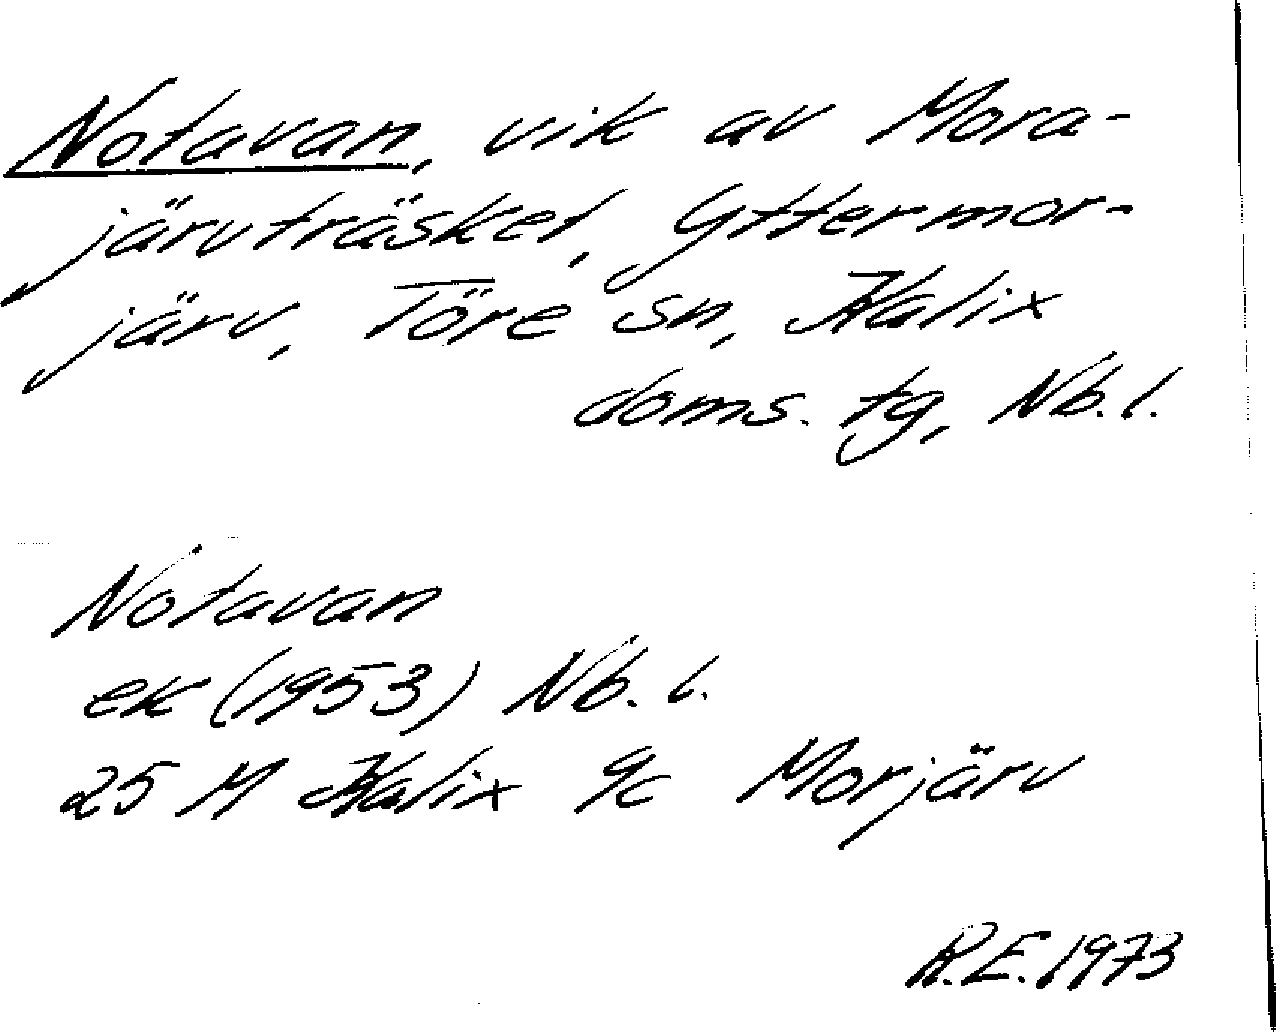 Notavan, vik av Mora-
järvträsket, Yttermor-
järv, Töre sn, Kalix
doms. tg, Nb.l.
Notavan
ek (1953) Nb. l.
25 M Kalix 9c Morjärv
R.E. 1973